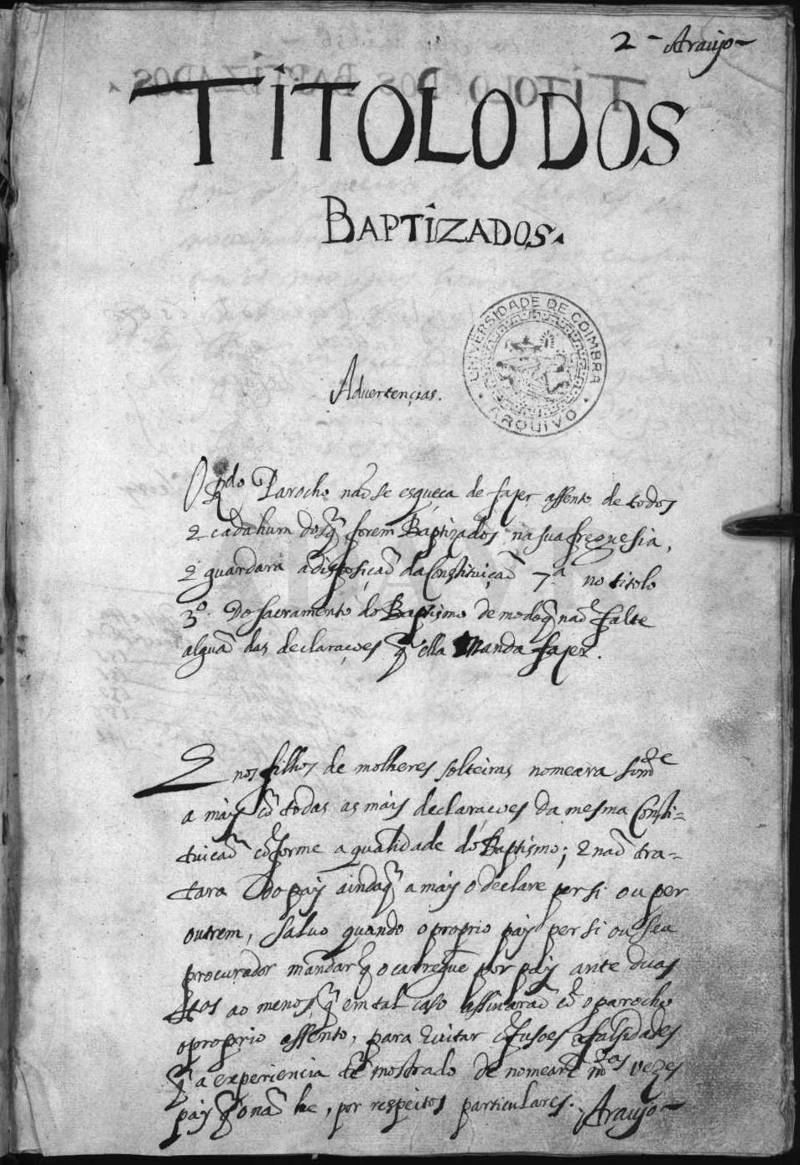 2 - Araujo -
TITOLO DOS
BAPTIZADOS.
UNIVERSIDADE DE COIMBRA
ARQUIVO
Advertençias.
O Rdo Parocho naõ se esqueça de fazer assento de todos
e cada hum dos q̃ forem Baptizados na sua freguesia,
e guardara a disposicaõ da Constituiçaõ 7ª no titolo
3º. Do sacramento do Baptismo de modo q̃ naõ falte
alguã das declaraçoes q̃ ella Manda fazer.
E nos filhos de molheres solteiras nomeara somte
a mãy cõ todas as mais declaraçoes da mesma Consti-
tuicaõ cõforme a qualidade do Baptismo; e naõ tra-
tara Do pay ainda q̃ a mãy o declare per si ou per
outrem, salvo quando o proprio pay per si ou seu
procurador mandar q̃ o carregue por pay ante duas
ttas ao menos, q̃ em tal caso assinaraõ cõ o parocho
o proprio assento, para evitar cõfusoes e falsidades
q̃ a experiencia tẽ mostrado de nomearẽ mtas vezes
pay q̃ o naõ he, por respeitos particulares. Araujo -